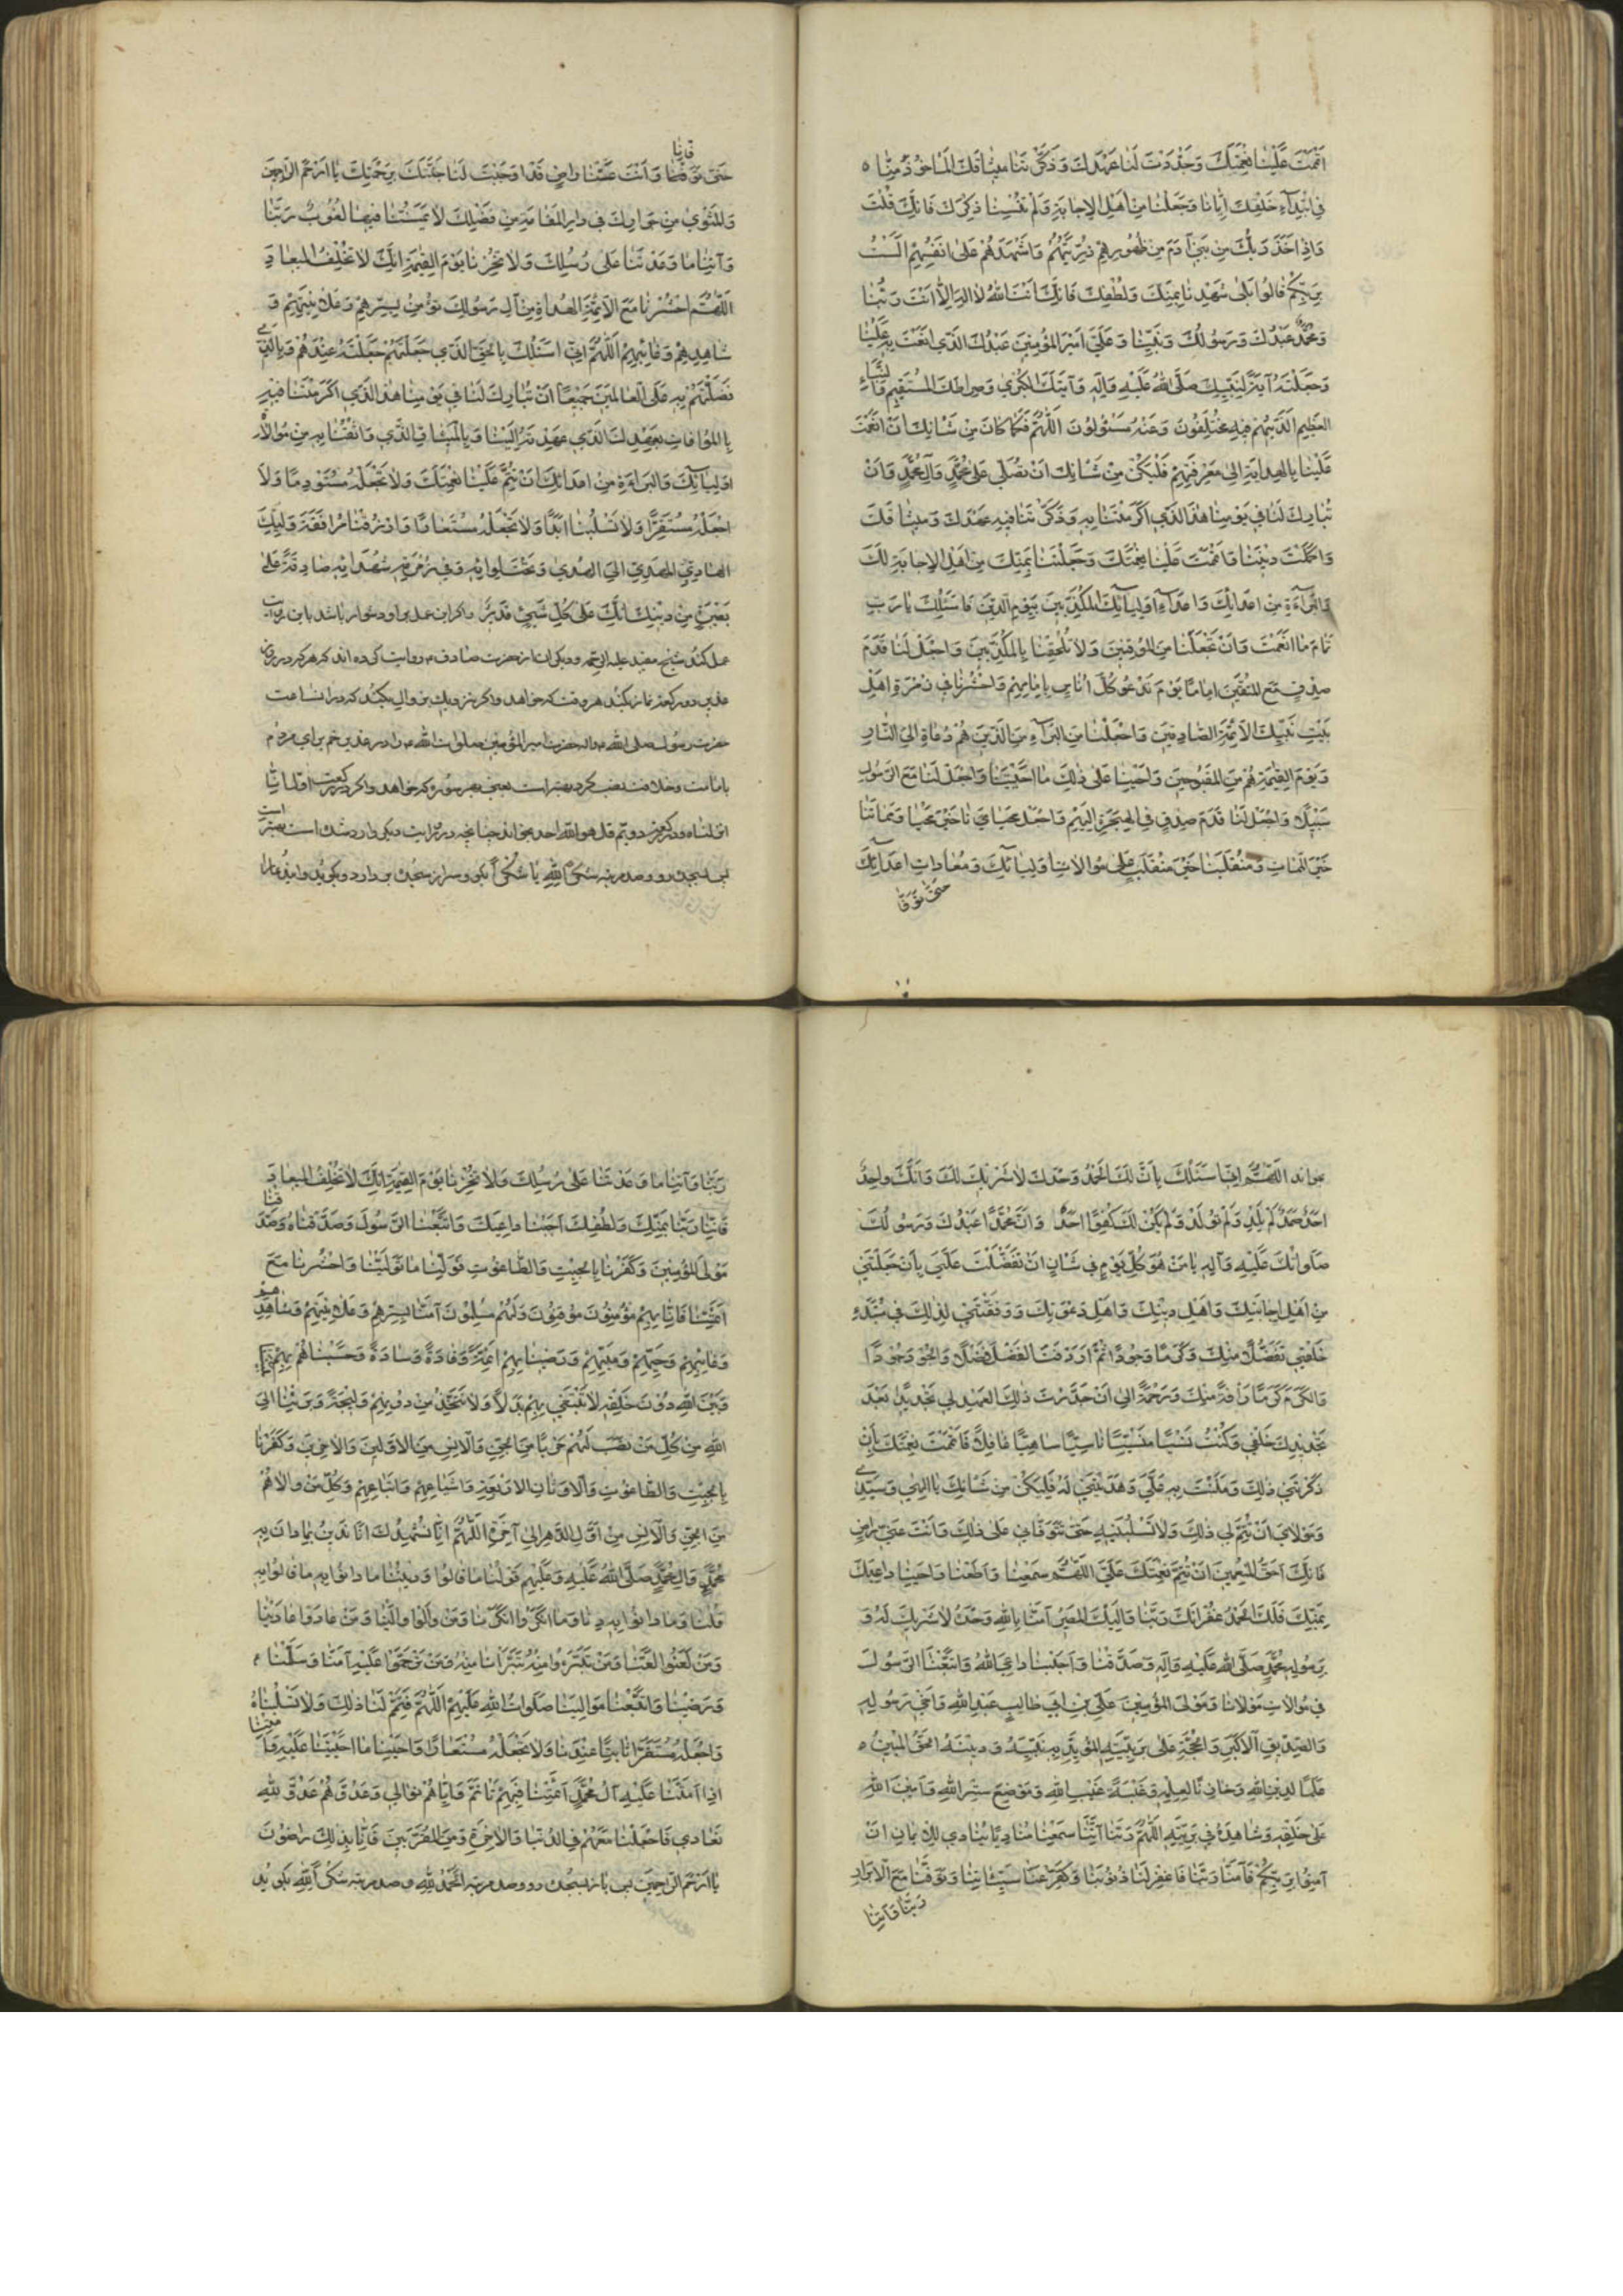 اَتْمَمْتَ عَلَيْنَا نِعْمَتَكَ وَجَدَّدْتَ لَنَا عَهْدَكَ وَذَكَّرْتَنَا مِيثَاقَكَ الْمَأخُوذَ مِنَّا
فِي ابْتِدَآءِ خَلْقِكَ اِيَّانَا وَجَعَلْتَنَا مِنْ اَهْلِ الْاِجَابَةِ وَلَمْ تُنْسِنَا ذِكْرَكَ فَاِنَّكَ قُلْتَ
وَاِذْ اَخَذَ رَبُّكَ مِنْ بَنِي آدَمَ مِنْ ظُهُورِهِمْ ذُرِّيَّتَهُمْ وَاَشْهَدَهُمْ عَلَى اَنْفُسِهِمْ اَلَسْتُ
بِرَبِّكُمْ قَالُوا بَلَى شَهِدْنَا بِمَنِّكَ وَلُطْفِكَ فَاِنَّكَ اَنْتَ اللهُ لَا اِلَهَ اِلَّا اَنْتَ رَبُّنَا
وَمُحَمَّدٌ عَبْدُكَ وَرَسُولُكَ وَنَبِيُّنَا وَعَلِيٌّ اَمِيرُ الْمُؤْمِنِينَ عَبْدُكَ الَّذِي اَنْعَمْتَ بِهِ عَلَيْنَا
وَجَعَلْتَهُ آيَةً لِنَبِيِّكَ صَلَّى اللهُ عَلَيْهِ وَآلِهِ وَآيَتَكَ الْكُبْرَى وَصِرَاطَكَ الْمُسْتَقِيمَ وَالنَّبَاءِ
الْعَظِيمِ الَّذِي هُمْ فِيهِ مُخْتَلِفُونَ وَعَنْهُ مَسْئُولُونَ اَللّٰهُمَّ فَكَمَا كَانَ مِنْ شَانِكَ اَنْ اَنْعَمْتَ
عَلَيْنَا بِالْهِدَايَةِ اِلَى مَعْرِفَتِهِمْ فَلْيَكُنْ مِنْ شَانِكَ اَنْ تُصَلِّيَ عَلَى مُحَمَّدٍ وَآلِ مُحَمَّدٍ وَاَنْ
تُبَارِكَ لَنَا فِي يَوْمِنَا هَذَا الَّذِي اَكْرَمْتَنَا بِهِ وَذَكَّرْتَنَا فِيهِ عَهْدَكَ وَمِيثَاقَكَ
وَاَكْمَلْتَ دِينَنَا وَاَتْمَمْتَ عَلَيْنَا نِعْمَتَكَ وَجَعَلْتَنَا بِمَنِّكَ مِنْ اَهْلِ الْاِجَابَةِ لَكَ
وَالْبَرَآءَةِ مِنْ اَعْدَائِكَ وَاَعْدَآءِ اَوْلِيَآئِكَ الْمُكَذِّبِينَ بِيَوْمِ الدِّينِ فَاَسْئَلُكَ يَا رَبِّ
تَمَامَ مَا اَنْعَمْتَ وَاَنْ تَجْعَلَنَا مِنَ الْمُوقِنِينَ وَلَا تُلْحِقْنَا بِالْمُكَذِّبِينَ وَاجْعَلْ لَنَا قَدَمَ
صِدْقٍ مَعَ الْمُتَّقِينَ اِمَامًا يَوْمَ تَدْعُو كُلَّ اُنَاسٍ بِاِمَامِهِمْ وَاحْشُرْنَا فِي زُمْرَةِ اَهْلِ
بَيْتِ نَبِيِّكَ الْاَئِمَّةِ الصَّادِقِينَ وَاجْعَلْنَا مِنَ الْبُرَآءِ مِنَ الَّذِينَ هُمْ دُعَاةٌ اِلَى النَّارِ
وَيَوْمَ الْقِيٰمَةِ هُمْ مِنَ الْمَقْبُوحِينَ وَاَحْيِنَا عَلَى ذَلِكَ مَا اَحْيَيْتَنَا وَاجْعَلْ لَنَا مَعَ الرَّسُولِ
سَبِيلًا وَاجْعَلْ لَنَا قَدَمَ صِدْقٍ فِي الْهِجْرَةِ اِلَيْهِمْ وَاجْعَلْ مَحْيَايَ نَا خَيْرَ مَحْيَا وَمَمَاتَنَا
خَيْرَ الْمَمَاتِ وَمُنْقَلَبَنَا خَيْرَ مُنْقَلَبٍ عَلَى مُوَالَاتِ اَوْلِيَائِكَ وَمُعَادَاتِ اَعْدَآئِكَ
حَتَّى تَوَفَّا
فَانَا
حَتَّى تَوَفَّانَا وَاَنْتَ عَنَّا رَاضٍ قَدْ اَوْجَبْتَ لَنَا جَنَّتَكَ بِرَحْمَتِكَ يَا اَرْحَمَ الرَّاحِمِينَ
وَالْمَثْوَى مِنْ جِوَارِكَ فِي دَارِ الْمُقَامَةِ مِنْ فَضْلِكَ لَا يَمَسُّنَا فِيهَا لُغُوبٌ رَبَّنَا
وَآتِنَا مَا وَعَدْتَنَا عَلَى رُسُلِكَ وَلَا تُخْزِنَا يَوْمَ الْقِيٰمَةِ اِنَّكَ لَا تُخْلِفُ الْمِيعَادِ
اَللّٰهُمَّ احْشُرْنَا مَعَ الْاَئِمَّةِ الْهُدَاةِ مِنْ آلِ رَسُولِكَ نُؤْمِنُ بِسِرِّهِمْ وَعَلَانِيَتِهِمْ وَ
شَاهِدِهِمْ وَغَائِبِهِمْ اَللّٰهُمَّ اِنِّي اَسْئَلُكَ بِالْحَقِّ الَّذِي جَعَلْتَهُ عِنْدَهُمْ وَبِالَّذِي
فَضَّلْتَهُمْ بِهِ عَلَى الْعَالَمِينَ جَمِيعًا اَنْ تُبَارِكَ لَنَا فِي يَوْمِنَا هَذَا الَّذِي اَكْرَمْتَنَا فِيهِ
بِالْمُوَافَاتِ بِعَهْدِكَ الَّذِي عَهِدْتَهُ اِلَيْنَا وَبِالْمِيثَاقِ الَّذِي وَاثَقْتَنَا بِهِ مِنْ مُوَالَاةِ
اَوْلِيَائِكَ وَالْبَرَاءَةِ مِنْ اَعْدَائِكَ اَنْ تُتِمَّ عَلَيْنَا نِعْمَتَكَ وَلَا تَجْعَلْهُ مُسْتَوْدِعًا وَلَا
اجْعَلْهُ مُسْتَقَرًّا وَلَا تَسْلُبْنَا اَبَدًا وَلَا تَجْعَلْهُ مُسْتَعَارًا وَارْزُقْنَا مُرَافَقَةَ وَلِيِّكَ
الْهَادِي الْمَهْدِيِّ اِلَى الْهُدَى وَتَحْتَ لِوَائِهِ وَفِي زُمْرَتِهِ شُهَدَاءِ صَادِقَةً عَلَى
بَصِيرَةٍ مِنْ دِينِكَ اِنَّكَ عَلَى كُلِّ شَيْءٍ قَدِيرٌ واكر اين عمل براو دشوار باشد باين روايت
عمل كند شيخ مفيد عليه الرحمه وديكران از حضرت صادق ع روايت كرده اند كه هركه در روز
غدير دو ركعت نماز بكند هروقت كه خواهد واكر نزديك بزوال بكند كه دران ساعت
حضرت رسول صلى الله عليه واله حضرت امير المؤمنين صلوات الله عليه را در غدير خم براي مردم
بامامت وخلافت نصب كرد بهتر است يعني بهر سوره كه خواهد واكر در ركعت اول انا
انزلناه ودر ركعت دويم قل هو الله احد بخواند چنانچه در روايت ديكر وارد شده است بهتر است
پس بسجده رود وصد مرتبه شُكْرًا لِلهِ يا شُكْرًا بكو وسر از سجده بردارد وبكويد واين دعا را
بخواند اَللّٰهُمَّ اِنِّي اَسْئَلُكَ بِاَنَّ لَكَ الْحَمْدُ وَحْدَكَ لَا شَرِيكَ لَكَ وَاَنَّكَ وَاحِدٌ
اَحَدٌ صَمَدٌ لَمْ تَلِدْ وَلَمْ تُولَدْ وَلَمْ يَكُنْ لَكَ كُفُوًا اَحَدٌ وَاَنَّ مُحَمَّدًا عَبْدُكَ وَرَسُولُكَ
صَلَوَاتُكَ عَلَيْهِ وَآلِهِ يَا مَنْ هُوَ كُلَّ يَوْمٍ فِي شَاْنٍ اَنْ تَفَضَّلْتَ عَلَيَّ بِاَنْ جَعَلْتَنِي
مِنْ اَهْلِ اِجَابَتِكَ وَاَهْلِ دِينِكَ وَاَهْلِ دَعْوَتِكَ وَوَفَّقْتَنِي لِذٰلِكَ فِي مُبْتَدَءِ
خَلْقِي تَفَضُّلًا مِنْكَ وَكَرَمًا وَجُودًا ثُمَّ اَرْدَفْتَ الْفَضْلَ فَضْلًا وَالْجُودَ جُودًا
وَالْكَرَمَ كَرَمًا رَاْفَةً مِنْكَ وَرَحْمَةً اِلَى اَنْ جَدَّدْتَ ذٰلِكَ الْعَهْدَ لِي تَجْدِيدًا بَعْدَ
تَجْدِيدِكَ خَلْقِي وَكُنْتُ نَسْيًا مَنْسِيًّا نَاسِيًا سَاهِيًا غَافِلًا فَاَتْمَمْتَ نِعْمَتَكَ بِاَنْ
ذَكَّرْتَنِي ذٰلِكَ وَمَنَنْتَ بِهِ عَلَيَّ وَهَدَيْتَنِي لَهُ فَلْيَكُنْ مِنْ شَاْنِكَ يَا اِلٰهِي وَسَيِّدِي
وَمَوْلَايَ اَنْ تُتِمَّ لِي ذٰلِكَ وَلَا تَسْلُبَنِيهِ حَتَّى تَتَوَفَّانِي عَلَى ذٰلِكَ وَاَنْتَ عَنِّي رَاضٍ
فَاِنَّكَ اَحَقُّ الْمُنْعِمِينَ اَنْ تُتِمَّ نِعْمَتَكَ عَلَيَّ اَللّٰهُمَّ سَمِعْنَا وَاَطَعْنَا وَاَجَبْنَا دَاعِيَكَ
بِمَنِّكَ فَلَكَ الْحَمْدُ غُفْرَانَكَ رَبَّنَا وَاِلَيْكَ الْمَصِيرُ آمَنَّا بِاللهِ وَحْدَهُ لَا شَرِيكَ لَهُ وَ
بِرَسُولِهِ مُحَمَّدٍ صَلَّى اللهُ عَلَيْهِ وَآلِهِ وَصَدَّقْنَا وَاَجَبْنَا دَاعِيَ اللهِ وَاتَّبَعْنَا الرَّسُولَ
فِي مُوَالَاتِ مَوْلَانَا وَمَوْلَى الْمُؤْمِنِينَ عَلِيِّ بْنِ اَبِي طَالِبٍ عَبْدِ اللهِ وَاَخِي رَسُولِهِ
وَالصِّدِّيقِ الْاَكْبَرِ وَالْحُجَّةِ عَلَى بَرِيَّتِهِ الْمُؤَيِّدِ بِهِ نَبِيَّهُ وَدِينَهُ الْحَقَّ الْمُبِينَ
عَلَمًا لِدِينِ اللهِ وَخَازِنًا لِعِلْمِهِ وَعَيْبَةَ غَيْبِ اللهِ وَمَوْضِعَ سِرِّ اللهِ وَاَمِينَ اللهِ
عَلَى خَلْقِهِ وَشَاهِدَهُ فِي بَرِيَّتِهِ اَللّٰهُمَّ رَبَّنَا اِنَّنَا سَمِعْنَا مُنَادِيًا يُنَادِي لِلْاِيمَانِ اَنْ
آمِنُوا بِرَبِّكُمْ فَآمَنَّا رَبَّنَا فَاغْفِرْ لَنَا ذُنُوبَنَا وَكَفِّرْ عَنَّا سَيِّئَاتِنَا وَتَوَفَّنَا مَعَ الْاَبْرَارِ
رَبَّنَا وَآتِنَا
رَبَّنَا وَآتِنَا مَا وَعَدْتَنَا عَلَى رُسُلِكَ وَلَا تُخْزِنَا يَوْمَ الْقِيٰمَةِ اِنَّكَ لَا تُخْلِفُ الْمِيعَادَ
فَاِنَّا رَبَّنَا بِمَنِّكَ وَلُطْفِكَ اَجَبْنَا دَاعِيَكَ وَاتَّبَعْنَا الرَّسُولَ وَصَدَّقْنَاهُ وَصَدَّقْنَا
مَوْلَى الْمُؤْمِنِينَ وَكَفَرْنَا بِالْجِبْتِ وَالطَّاغُوتِ فَوَلِّنَا مَا تَوَلَّيْنَا وَاحْشُرْنَا مَعَ
اَئِمَّتِنَا فَاِنَّا بِهِمْ مُؤْمِنُونَ مُوقِنُونَ وَلَهُمْ مُسَلِّمُونَ آمَنَّا بِسِرِّهِمْ وَعَلَانِيَتِهِمْ وَشَاهِدِهِمْ
وَغَائِبِهِمْ وَحَيِّهِمْ وَمَيِّتِهِمْ وَرَضِينَا بِهِمْ اَئِمَّةً وَقَادَةً وَسَادَةً وَحَسْبُنَا بِهِمْ بَيْنَنَا
وَبَيْنَ اللهِ دُونَ خَلْقِهِ لَا نَبْتَغِي بِهِمْ بَدَلًا وَلَا نَتَّخِذُ مِنْ دُونِهِمْ وَلِيجَةً وَبَرِئْنَا اِلَى
اللهِ مِنْ كُلِّ مَنْ نَصَبَ لَهُمْ حَرْبًا مِنَ الْجِنِّ وَالْاِنْسِ مِنَ الْاَوَّلِينَ وَالْآخِرِينَ وَكَفَرْنَا
بِالْجِبْتِ وَالطَّاغُوتِ وَالْاَوْثَانِ الْاَرْبَعَةِ وَاَشْيَاعِهِمْ وَاَتْبَاعِهِمْ وَكُلِّ مَنْ وَالَاهُمْ
مِنَ الْجِنِّ وَالْاِنْسِ مِنْ اَوَّلِ الدَّهْرِ اِلَى آخِرِهِ اَللّٰهُمَّ اِنَّا نُشْهِدُكَ اَنَّا نَدِينُ بِمَا دَانَ بِهِ
مُحَمَّدٌ وَآلُ مُحَمَّدٍ صَلَّى اللهُ عَلَيْهِ وَعَلَيْهِمْ قَوْلُنَا مَا قَالُوا وَدِينُنَا مَا دَانُوا بِهِ مَا قَالُوا بِهِ
قُلْنَا وَمَا دَانُوا بِهِ دِنَّا وَمَا اَنْكَرُوا اَنْكَرْنَا وَمَنْ وَالَوْا وَالَيْنَا وَمَنْ عَادَوْا عَادَيْنَا
وَمَنْ لَعَنُوا لَعَنَّا وَمَنْ تَبَرَّءُوا مِنْهُ تَبَرَّأْنَا مِنْهُ وَمَنْ تَرَحَّمُوا عَلَيْهِ آمَنَّا وَسَلَّمْنَا
وَرَضِينَا وَاتَّبَعْنَا مَوَالِيَنَا صَلَوَاتُ اللهِ عَلَيْهِمْ اَللّٰهُمَّ فَتَمِّمْ لَنَا ذٰلِكَ وَلَا تَسْلُبْنَاهُ
وَاجْعَلْهُ مُسْتَقَرًّا ثَابِتًا عِنْدَنَا وَلَا تَجْعَلْهُ مُسْتَعَارًا وَاَحْيِنَا مَا اَحْيَيْتَنَا عَلَيْهِ وَاَمِتْنَا
اِذَا اَمَتَّنَا عَلَيْهِ آلُ مُحَمَّدٍ اَئِمَّتُنَا فَبِهِمْ نَاْتَمُّ وَاِيَّاهُمْ نُوَالِي وَعَدُوَّهُمْ عَدُوَّ اللهِ
نُعَادِي فَاجْعَلْنَا مَعَهُمْ فِي الدُّنْيَا وَالْآخِرَةِ وَمِنَ الْمُقَرَّبِينَ فَاِنَّا بِذٰلِكَ رَاضُونَ
يَا اَرْحَمَ الرَّاحِمِينَ پس باز بسجده رود وصد مرتبه اَلْحَمْدُ لِلهِ وصد مرتبه شُكْرًا لِلهِ بكويد